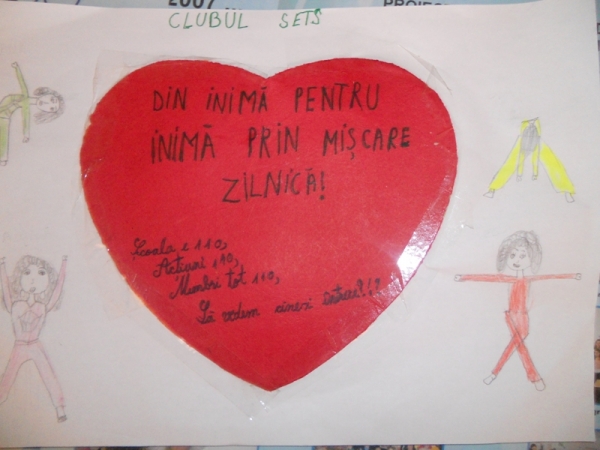 2007
PROIEC
CLUBUL SETS
DIN INIMĂ PENTRU
INIMĂ PRIN MIȘCARE
ZILNICĂ!
Școala e 110,
Acțiuni 110,
Membri tot 110,
Să vedem cine-i întrece?!?